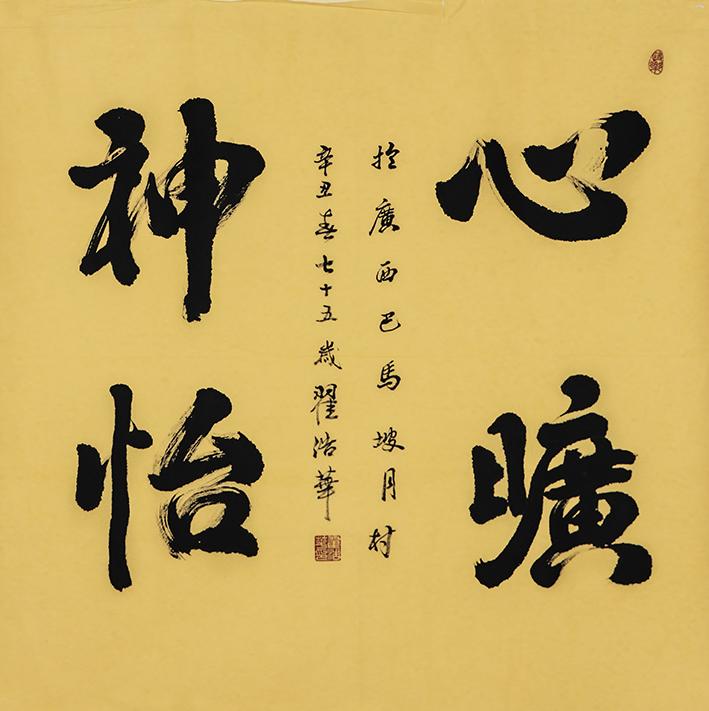 心曠
於廣西巴馬坡月村
辛丑春七十五歲翟浩華
神怡